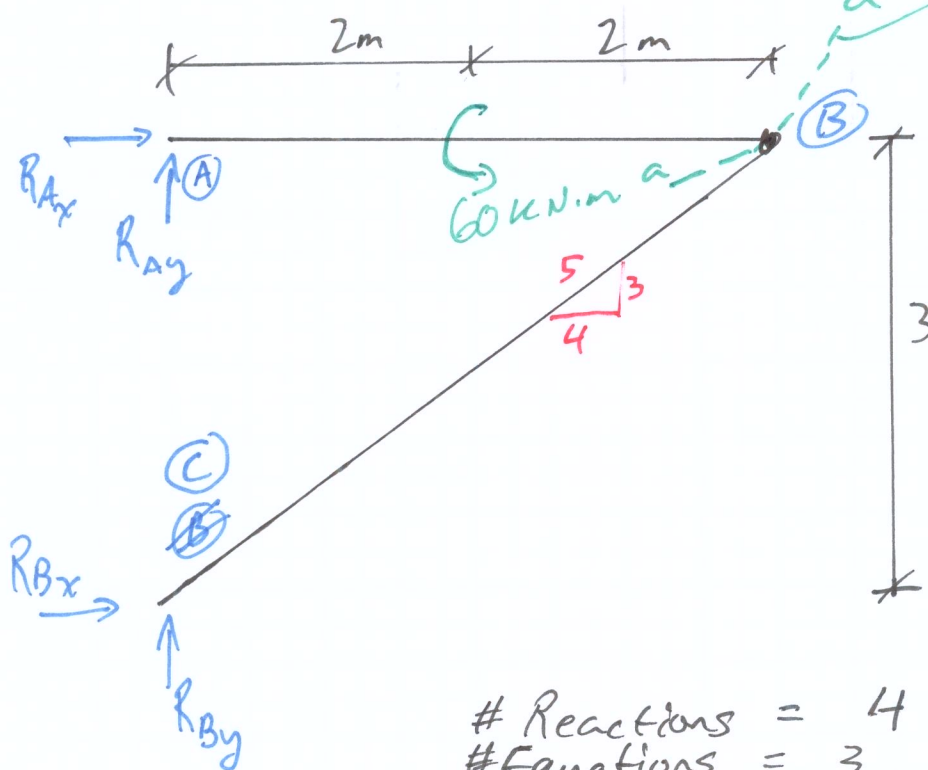 a
2m 2m
B
R_Ax
A
R_Ay
60 KN.m
a
5
3
4
3
C
R_Bx
R_By
# Reactions = 4
# Equations = 3